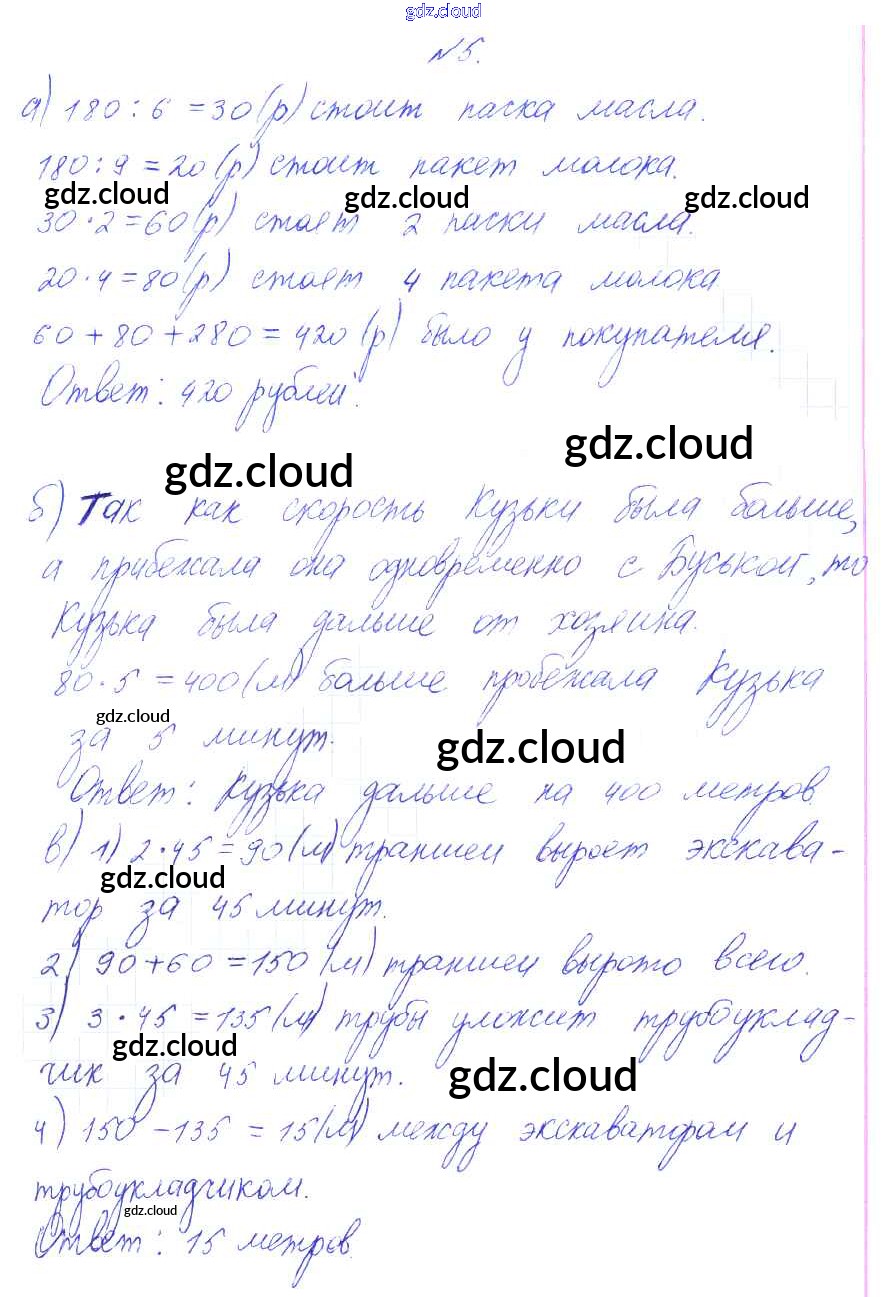 gdz.cloud
№5.
а) 180 : 6 = 30 (р) стоит пачка масла.
180 : 9 = 20 (р) стоит пакет молока.
gdz.cloud gdz.cloud gdz.cloud
30 · 2 = 60 (р) стоят 2 пачки масла.
20 · 4 = 80 (р) стоят 4 пакета молока
60 + 80 + 280 = 420 (р) было у покупателя.
Ответ: 420 рублей.
gdz.cloud gdz.cloud
б) Так как скорость Кузьки была больше,
а прибежала она одновременно с Буськой, то
Кузька была дальше от хозяина.
80 · 5 = 400 (м) больше пробежала Кузька
gdz.cloud
за 5 минут.
gdz.cloud
Ответ: Кузька дальше на 400 метров
в) 1) 2 · 45 = 90 (м) траншеи выроет экскава-
gdz.cloud
тор за 45 минут.
2) 90 + 60 = 150 (м) траншеи вырото всего.
3) 3 · 45 = 135 (м) трубы уложит трубоуклад-
gdz.cloud
чик за 45 минут.
gdz.cloud
4) 150 - 135 = 15 (м) между экскаватором и
трубоукладчиком.
gdz.cloud
Ответ: 15 метров.